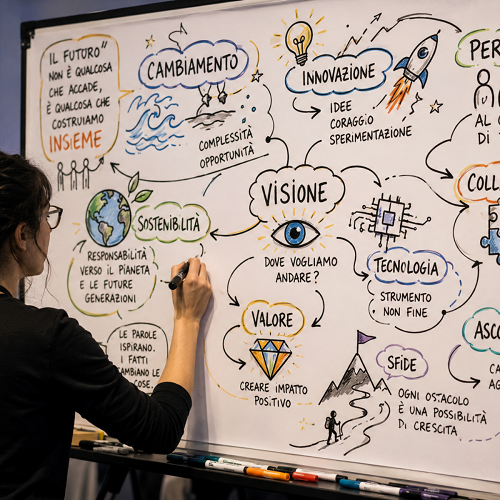 IL FUTURO"
NON È QUALCOSA
CHE ACCADE,
È QUALCOSA CHE
COSTRUIAMO
INSIEME
CAMBIAMENTO
COMPLESSITÀ
OPPORTUNITÀ
INNOVAZIONE
IDEE
CORAGGIO
SPERIMENTAZIONE
PER
AL C
DI
VISIONE
DOVE VOGLIAMO
ANDARE?
SOSTENIBILITÀ
RESPONSABILITÀ
VERSO IL PIANETA
E LE FUTURE
GENERAZIONI
COLL
TECNOLOGIA
STRUMENTO
NON FINE
VALORE
CREARE IMPATTO
POSITIVO
LE PAROLE
ISPIRANO.
I FATTI
CAMBIANO LE
COSE.
SFIDE
OGNI OSTACOLO
È UNA POSSIBILITÀ
DI CRESCITA
ASCO
CA
AG